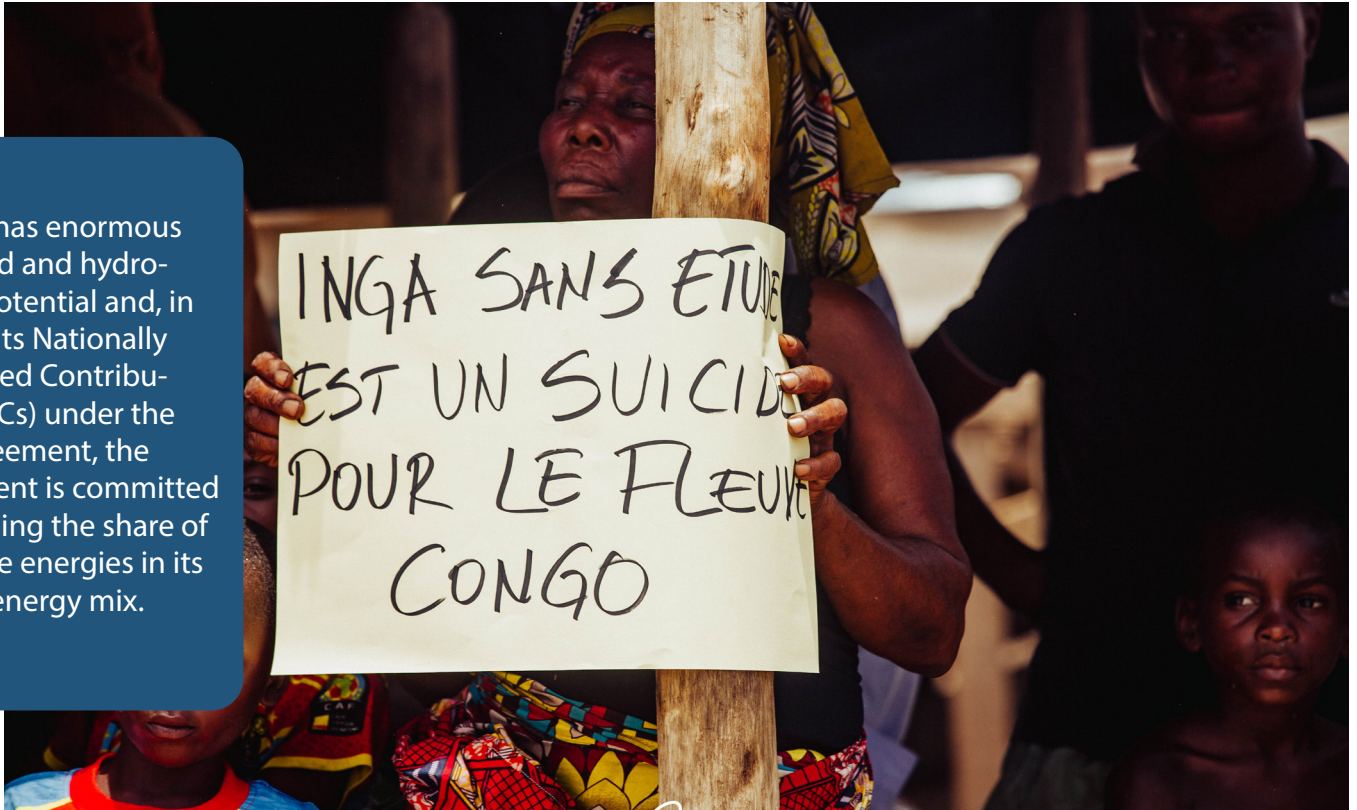 has enormous
d and hydro-
otential and, in
ts Nationally
ed Contribu-
Cs) under the
eement, the
ent is committed
ing the share of
e energies in its
energy mix.
INGA SANS ETUDE
EST UN SUICIDE
POUR LE FLEUVE
CONGO
CAF